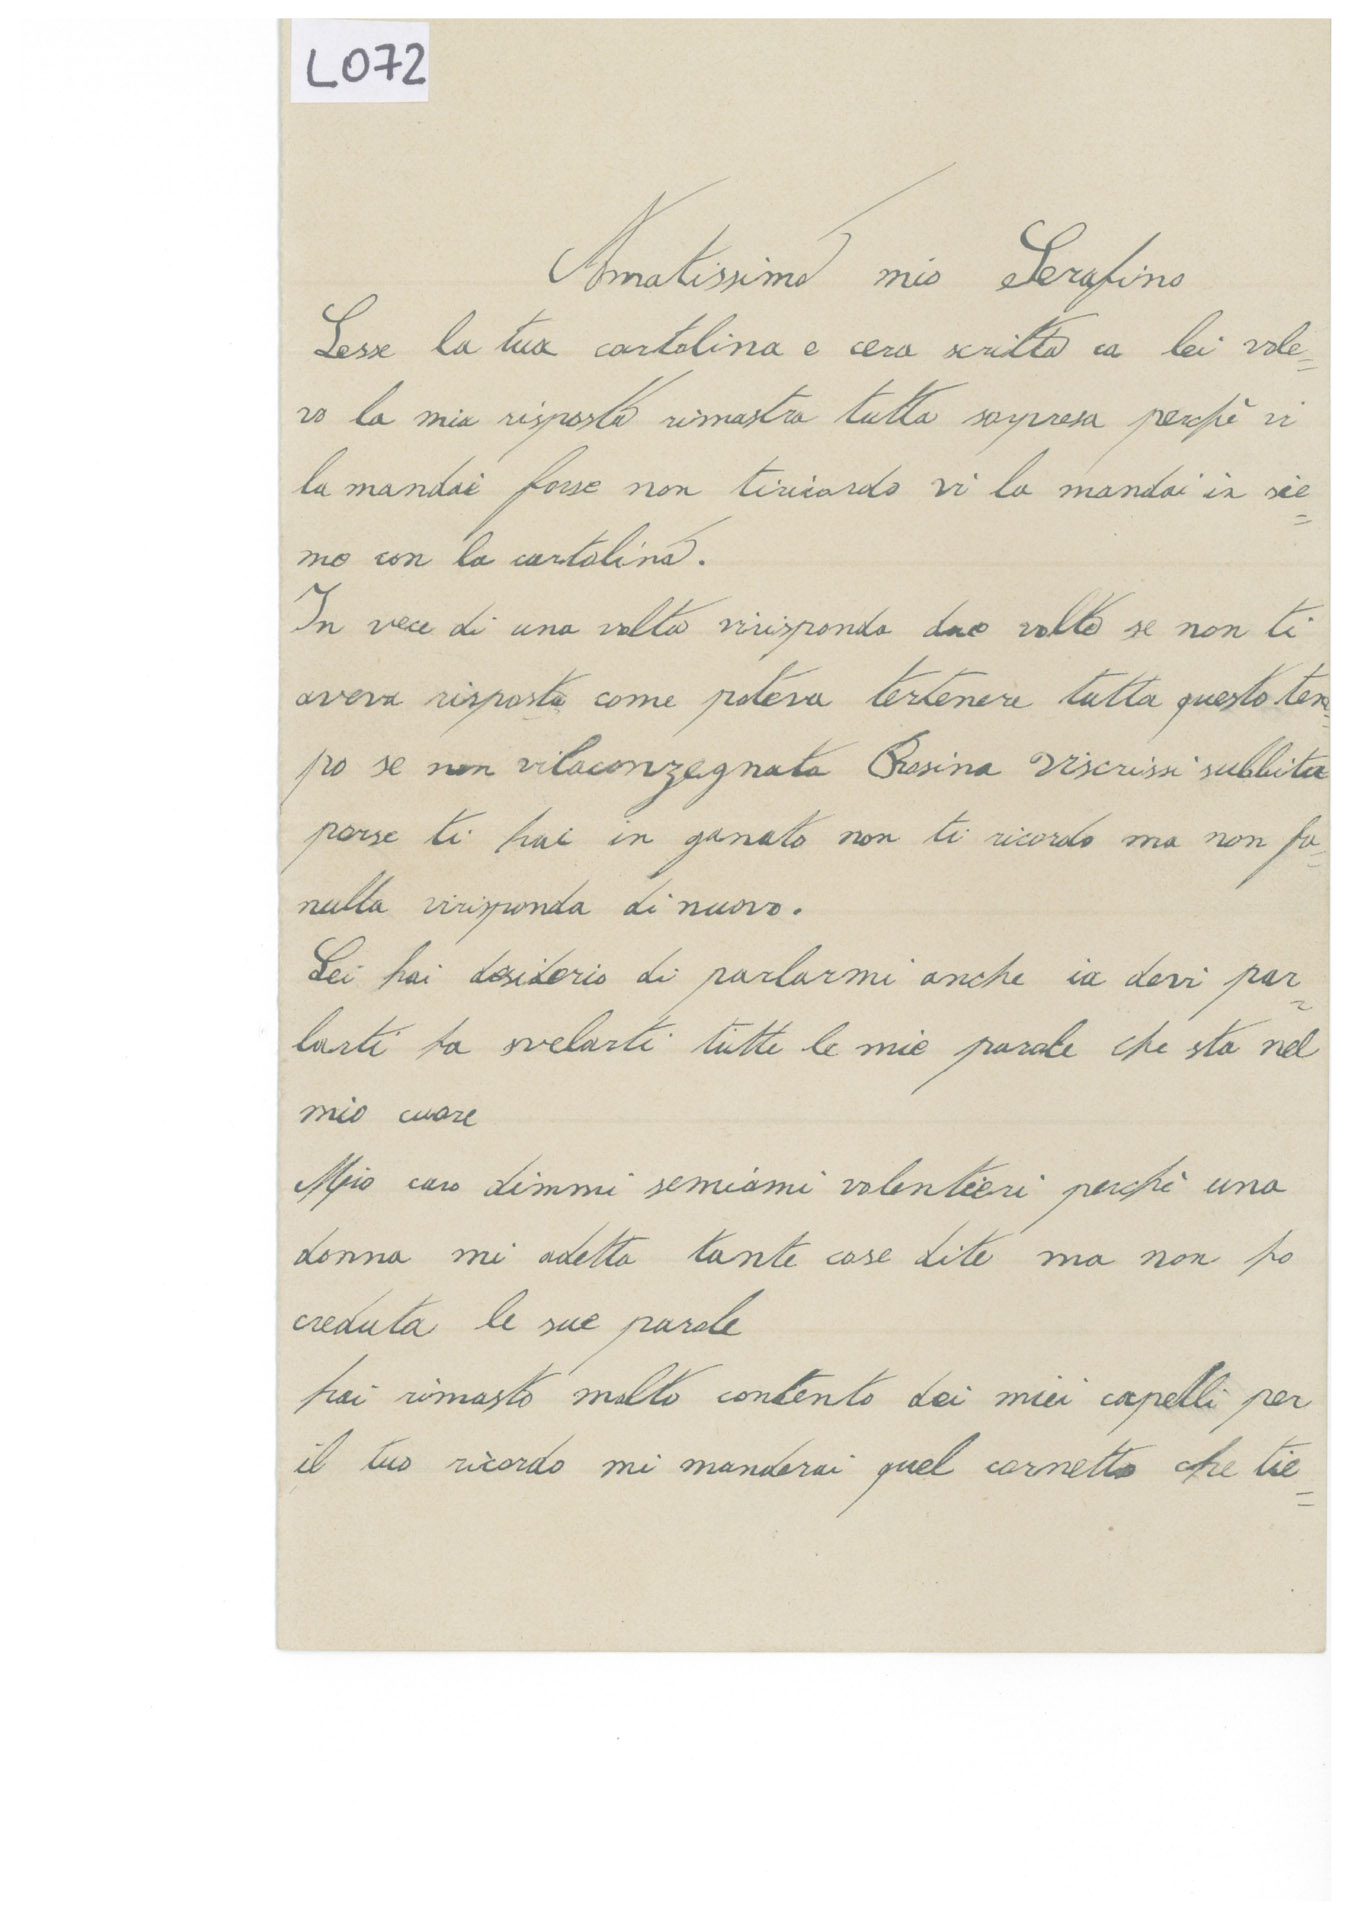 L072
Amatissimo mio Serafino
Lesse la tua cartolina e cera scritto ca lei vole=
vo la mia risposta rimastra tutta sorpresa perchè vi
la mandai forse non tiricordo vi la mandai in sie=
mo con la cartolina.
In vece di una volta virisponda due volte se non ti
aveva risposto come poteva tertenere tutta questo tem=
po se non vilaconzegnata Rosina viscrissi subbitu
porse ti hai in ganato non ti ricordo ma non fa=
nulla virisponda di nuovo.
Lei hai desiderio di parlarmi anche ia devi par=
larti ha svelarti tutte le mie parole che sta nel
mio cuore
Mio caro dimmi semiami volentieri perchè una
donna mi adetta tante cose dite ma non ho
creduta le sue parole
hai rimasto molto contento dei miei capelli per
il tuo ricordo mi manderai quel cornetto che tie=